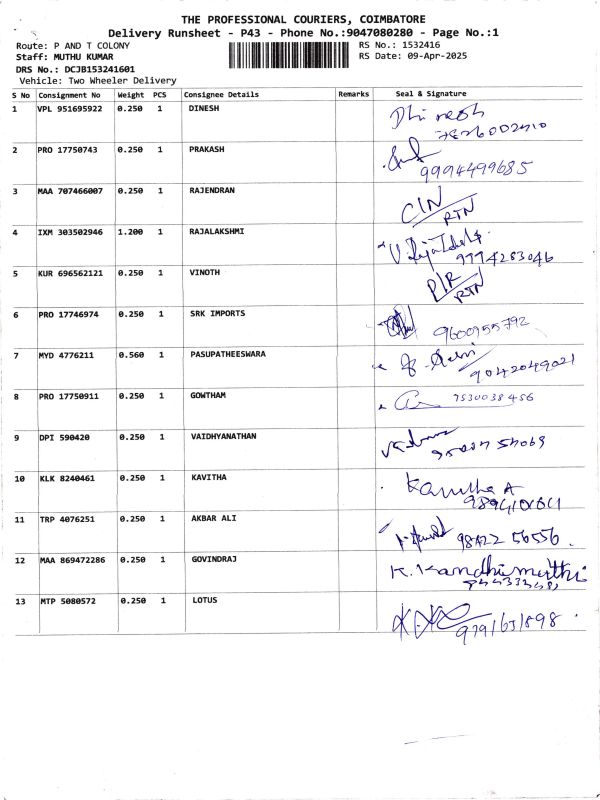 THE PROFESSIONAL COURIERS, COIMBATORE
Delivery Runsheet - P43 - Phone No.:9047080280 - Page No.:1
Route: P AND T COLONY RS No.: 1532416
Staff: MUTHU KUMAR RS Date: 09-Apr-2025
DRS No.: DCJB153241601
Vehicle: Two Wheeler Delivery
S No Consignment No Weight PCS Consignee Details Remarks Seal & Signature
1 VPL 951695922 0.250 1 DINESH
2 PRO 17750743 0.250 1 PRAKASH
9994499685
3 MAA 707466007 0.250 1 RAJENDRAN
RTN
4 IXM 303502946 1.200 1 RAJALAKSHMI
9774283046
5 KUR 696562121 0.250 1 VINOTH
RTN
6 PRO 17746974 0.250 1 SRK IMPORTS
9600955792
7 MYD 4776211 0.560 1 PASUPATHEESWARA
9042049021
8 PRO 17750911 0.250 1 GOWTHAM 7530038456
9 DPI 590420 0.250 1 VAIDHYANATHAN
10 KLK 8240461 0.250 1 KAVITHA Kavitha A
11 TRP 4076251 0.250 1 AKBAR ALI 98422 56556
12 MAA 869472286 0.250 1 GOVINDRAJ K. Kandhimathi
13 MTP 5080572 0.250 1 LOTUS
9791631898